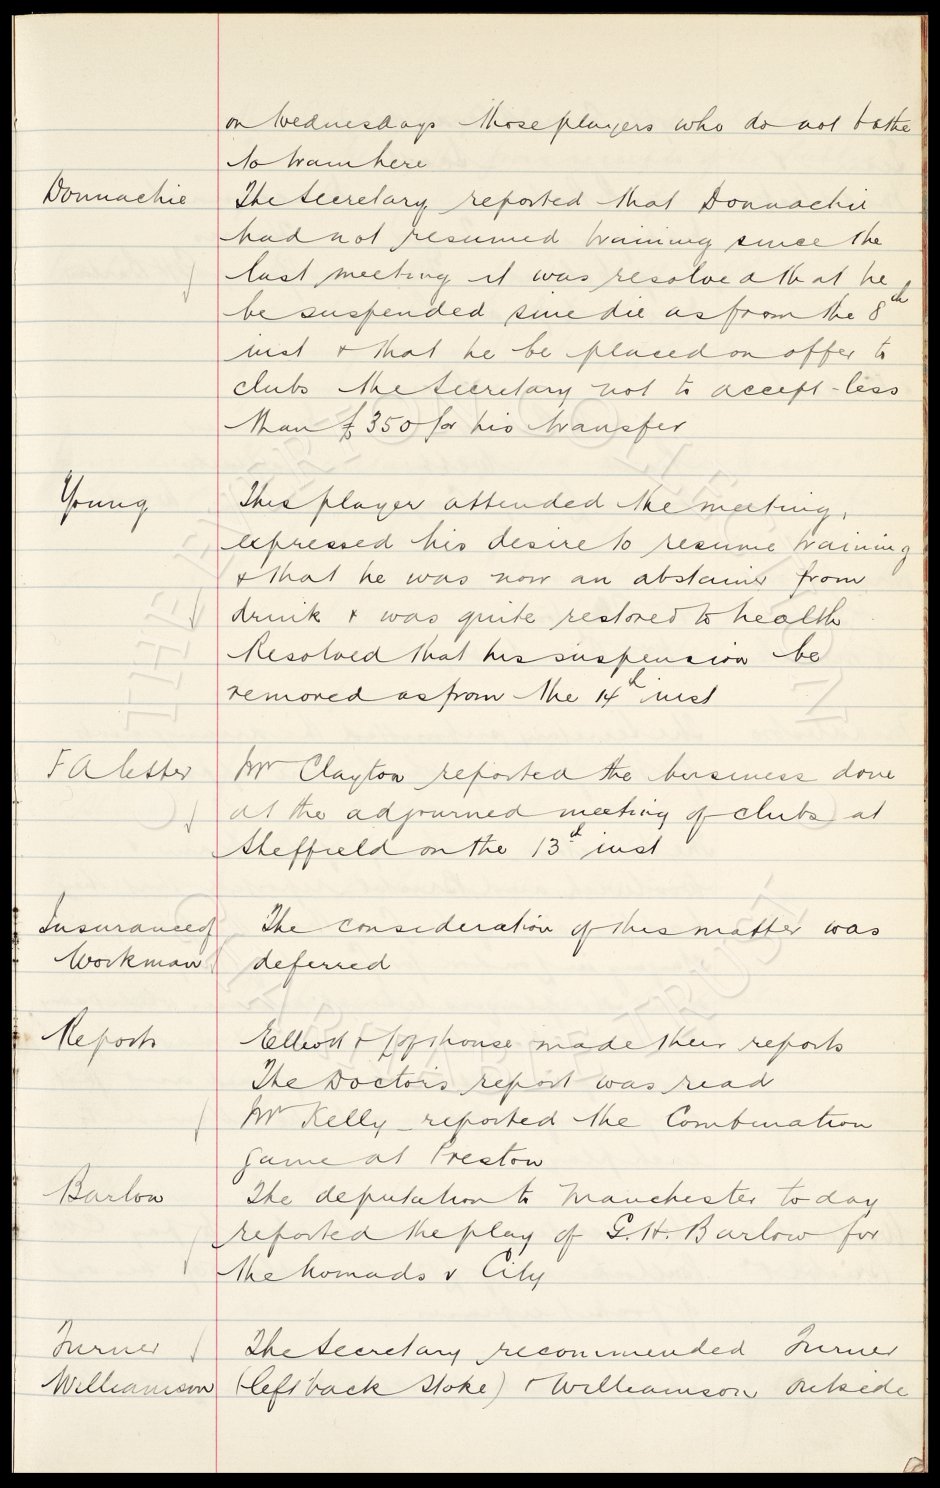 on Wednesdays those players who do not bathe
to train here
Donnachie The Secretary reported that Donnachie
had not resumed training since the
last meeting it was resolved that he
be suspended sine die as from the 8th
inst & that he be placed on offer to
clubs the Secretary not to accept less
than £350 for his transfer
Young This player attended the meeting,
expressed his desire to resume training
& that he was now an abstainer from
drink & was quite restored to health
Resolved that his suspension be
removed as from the 14th inst
F A letter Mr Clayton reported the business done
at the adjourned meeting of clubs at
Sheffield on the 13th inst
Insurance of The consideration of this matter was
Workman deferred
Reports Elliott & Lofthouse made their reports
The Doctors report was read
Mr Kelly reported the Combination
game at Preston
Barlow The deputation to Manchester today
reported the play of G.H. Barlow for
the Nomads v City
Turner The Secretary recommended Turner
Williamson (left back Stoke) & Williamson outside
© THE EVERTON COLLECTION CHARITABLE TRUST